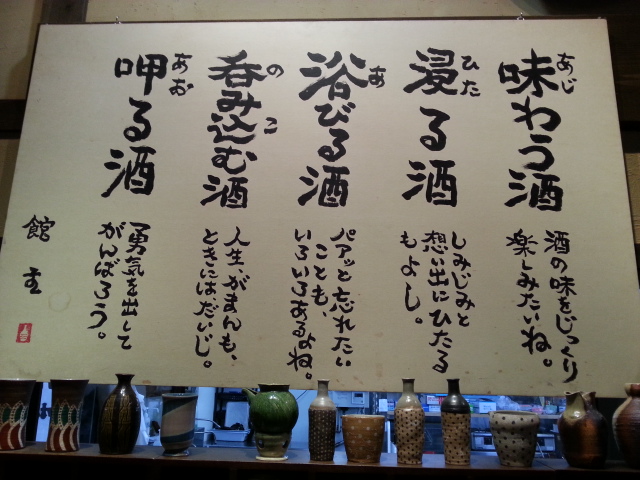 味わう酒
あじ
酒の味をじっくり
楽しみたいね。
浸る酒
ひた
しみじみと
想い出にひたる
もよし。
浴びる酒
あ
パアッと忘れたい
ことも、
いろいろあるよね。
呑み込む酒
の こ
人生、がまんも、
ときには、だいじ。
呷る酒
あお
勇気を出して
がんばろう。
館主